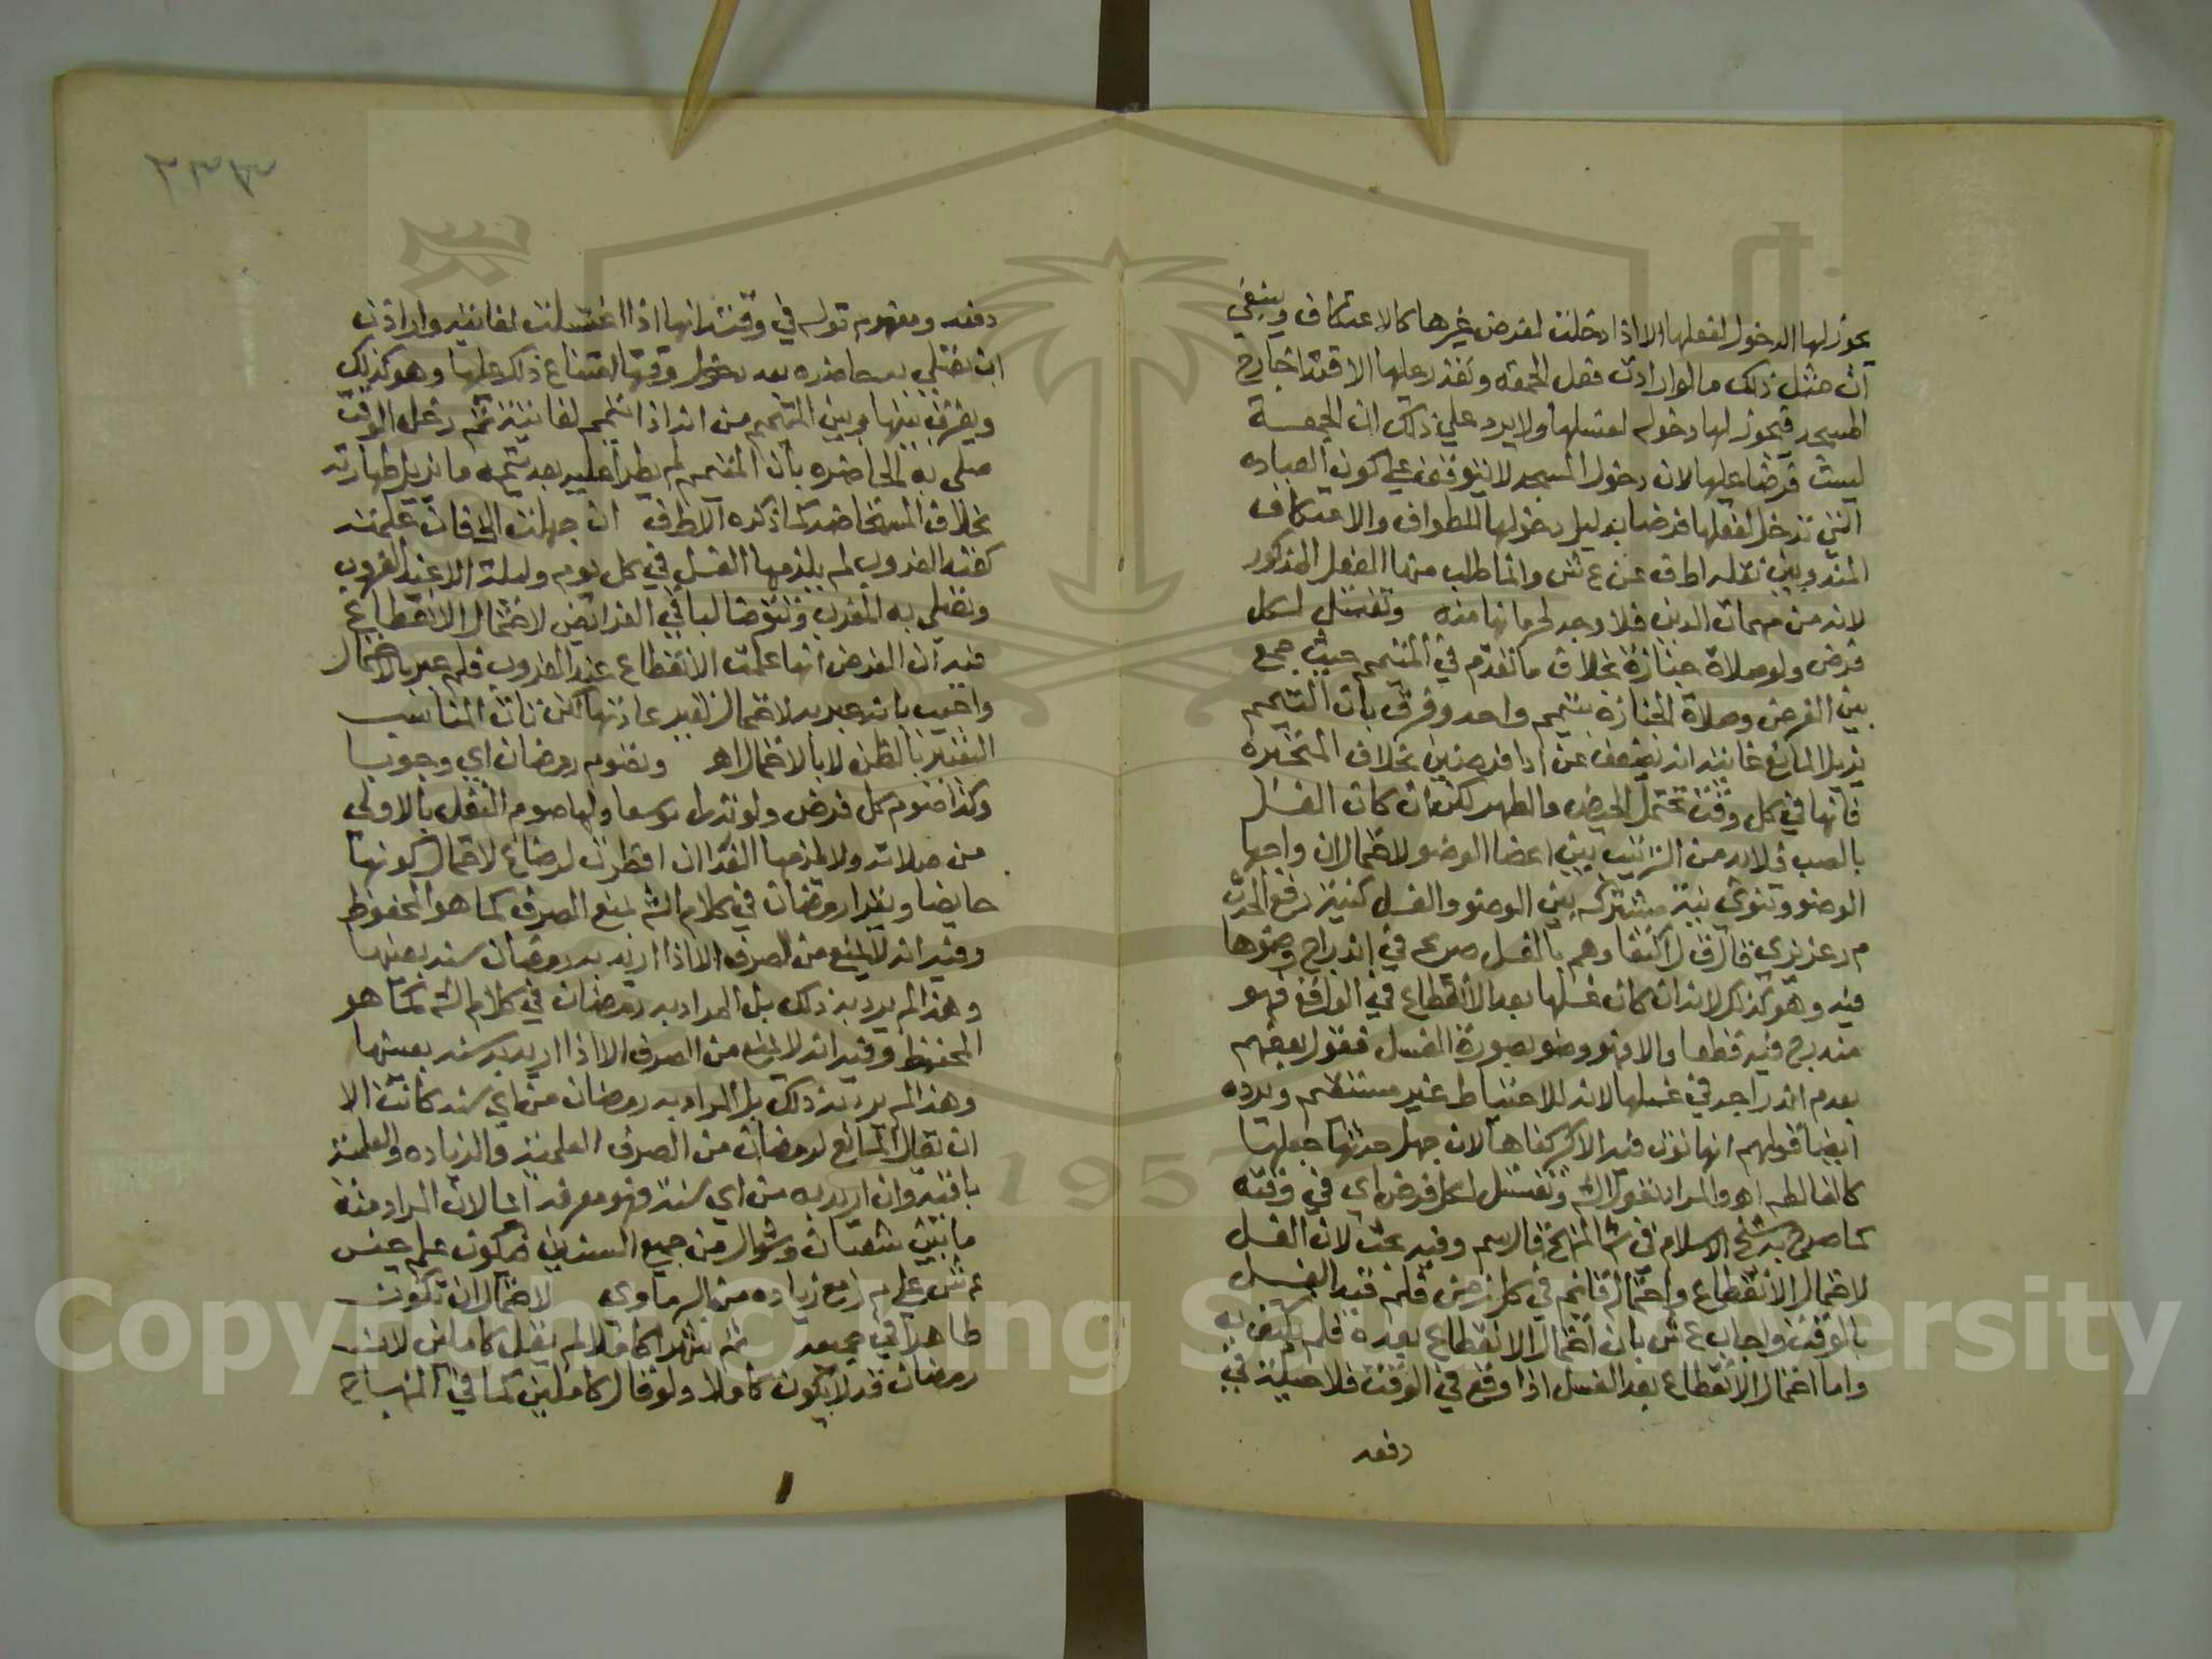 يجوز لها الدخول لفعلها الا اذا دخلت لغرض غيرها كالاعتكاف وينبغي
ان مثل ذلك ما لو ارادت فعل الجمعة وتعذر عليها الاقتدا خارج
المسجد فيجوز لها دخوله لفعلها ولا يرد علي ذلك ان الجمعة
ليست فرضا عليها لان دخول المسجد لا يتوقف علي كون العباده
التي تدخل لفعلها فرضا بدليل دخولها للطواف والاعتكاف
المندوبين نقله اط ف عن ع ش وانما طلب منها الفعل المذكور
لانه من مهمات الدين فلا وجه لحرمانها منه وتغتسل لكل
فرض ولو صلاة جنازة بخلاف ما تقدم في المتيمم حيث جمع
بين الفرض وصلاة الجنازه بتيمم واحد وفرق بان التيمم
يزيل المانع غايته انه يضعف عن ادا فرضين بخلاف المتحيره
فانها في كل وقت تحتمل الحيض والطهر لكن ان كان الغسل
بالصب فلا بد من الترتيب بين اعضا الوضو لاحتمال ان واجبها
الوضو وتنوي نية مشتركه بين الوضو والغسل كنية رفع الحدث
م د عزيزي قال ق ل اكتفاوهم بالغسل صريح في اندراج وضوها
فيه وهو كذلك لانه ان كان غسلها بعد الانقطاع في الواقع فهو
مندرج فيه قطعا والا فهو وضو بصورة الغسل فقول بعضهم
بعدم اندراجه في غسلها لانه للاحتياط غير مستقيم ويرده
ايضا قولهم انها لو نوت فيه الاكبر كفاها لان جهل حدثها جعلها
كالغالطه اهـ والمراد بقول الش وتغتسل لكل فرض اي في وقته
كما صرح به شيخ الاسلام في ش المنهج قال سم وفيه بحث لان الغسل
لاحتمال الانقطاع واحتماله قائم في كل زمن فلم قيد الغسل
بالوقت واجاب ع ش بان احتمال الانقطاع بعده فلم يكتف به
واما احتمال الانقطاع بعد الغسل اذا وقع في الوقت فلا حيلة في
دفعه
دفعه ومفهوم قوله في وقته انها اذا اغتسلت لفائتة وارادت
ان تصلي به حاضره بعد دخول وقتها امتناع ذلك عليها وهو كذلك
ويفرق بينها وبين المتيمم من انه اذا تيمم لفائتة ثم دخل الوقت
صلى به الحاضره بان المتيمم لم يطرا عليه بعد تيممه ما يزيل طهارته
بخلاف المستحاضه كما ذكره الاط ف ان جهلت الخ فان علمته
كعند الغروب لم يلزمها الغسل في كل يوم وليلة الا عند الغروب
وتصلي به المغرب وتتوضا لباقي الفرائض لاحتمال الانقطاع
فيه ان الفرض انها علمت الانقطاع عند الغروب فلم عبر بالاحتمال
واجيب بانه عبر به لاحتمال تغير عادتها لكن كان المناسب
التعبير بالظن لا بالاحتمال اهـ وتصوم رمضان اي وجوبا
وكذا صوم كل فرض ولو نذرا موسعا ولها صوم النفل بالاولى
من صلاته ولا يلزمها الفدا ان افطرت لرضاع لاحتمال كونها
حايضا ويقرا رمضان في كلام الش بمنع الصرف كما هو المحفوظ
وفيه انه لا يمنع من الصرف الا اذا اريد به رمضان سنه بعينها
وهذا لم يرد به ذلك بل المراد به رمضان في كلام الش كما هو
المحفوظ وفيه انه لا يمنع من الصرف الا اذا اريد به سنه بعينها
وهذا لم يرد به ذلك بل المراد به رمضان من اي سنه كانت الا
ان يقال المانع لرمضان من الصرف العلمية والزياده والعلمية
باقية وان اريد به من اي سنة فهو معرفه ايضا لان المراد منه
ما بين شعبان وشوال من جميع السنين فيكون علم جنس
ع ش علي م ر مع زياده من البرماوي لاحتمال ان تكون
طاهرا في جميعه ثم شهرا كاملا لم يقل كاملين لان
رمضان قد لا يكون كاملا ولو قال كاملين كما في المنهاج